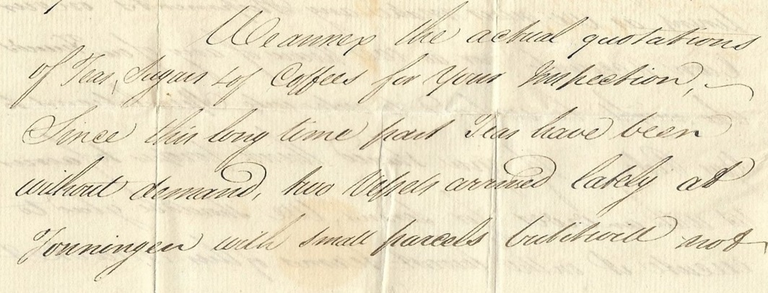 We annex the actual quotations
of Teas, Sugars & of Coffees for your Inspection,
Since this long time past Teas have been
without demand, two Vessels arrived lately at
Tonningen with small parcels but it will not